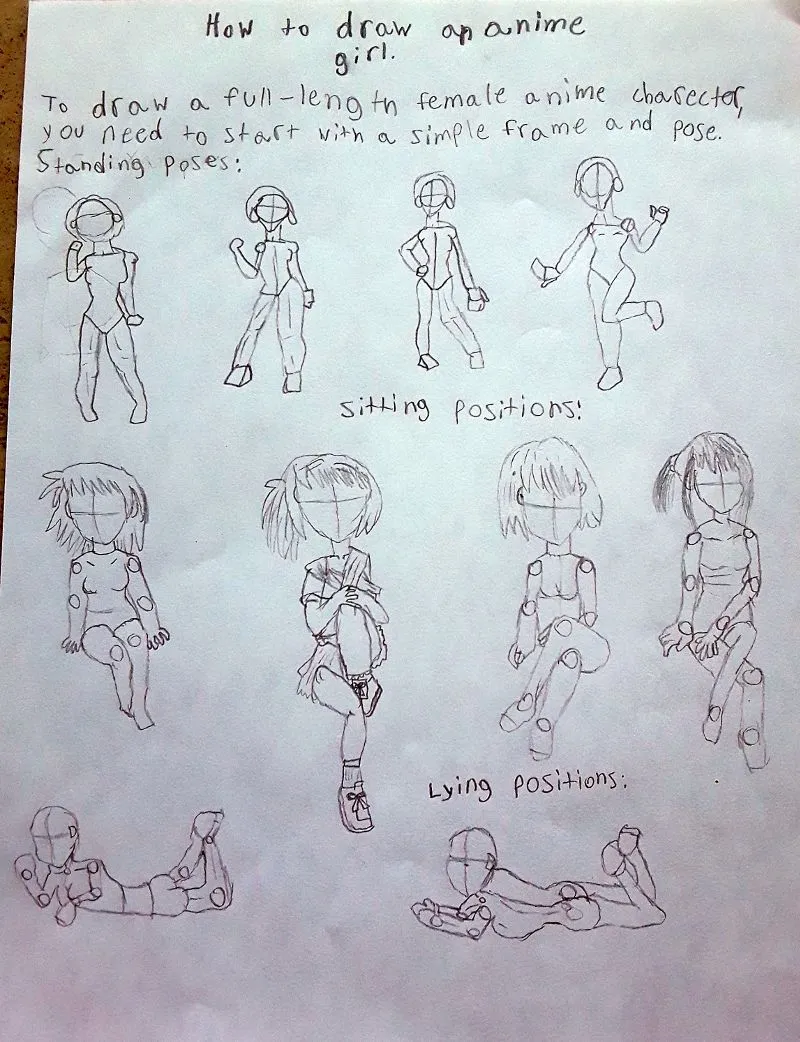 How to draw an anime
girl.
To draw a full-length female anime charecter,
you need to start with a simple frame and pose.
Standing poses:
sitting positions:
Lying positions: